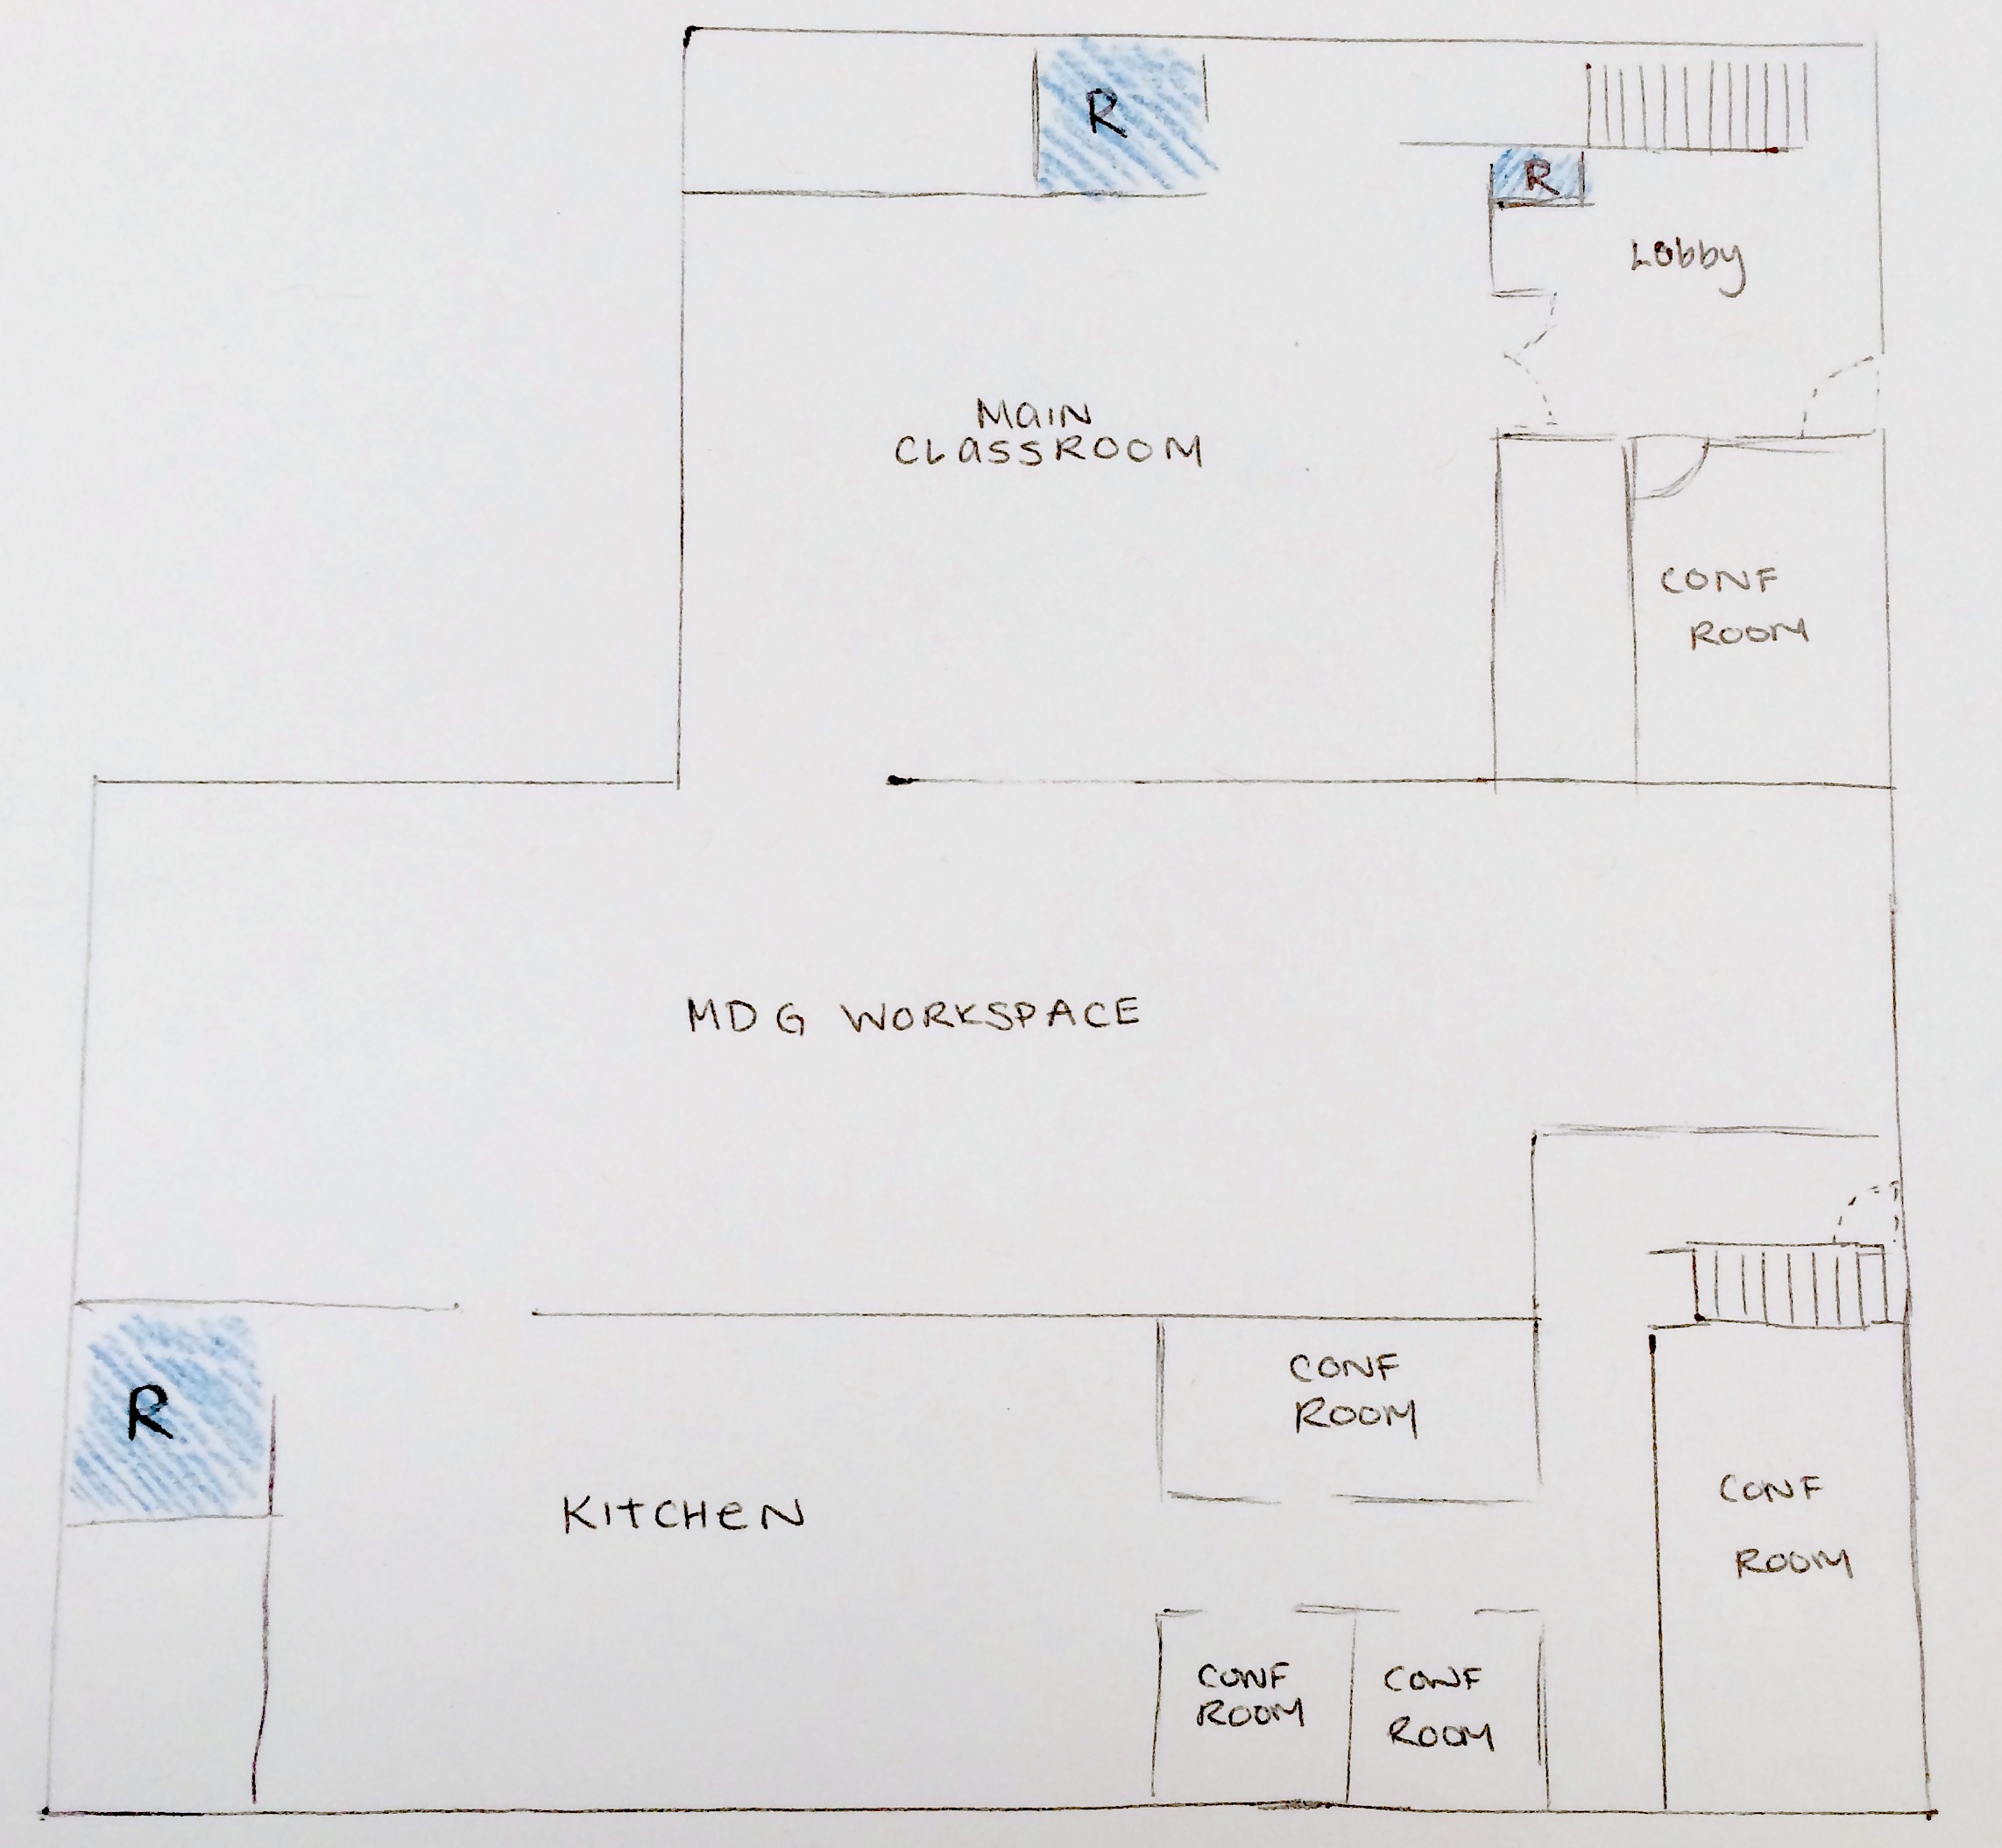 R
R
Lobby
MaIN
CLaSSROOM
CONF
ROOM
MDG WORKSPACE
CONF
ROOM
R
KITCHeN
CONF
ROOM
CONF
ROOM
CONF
ROOM